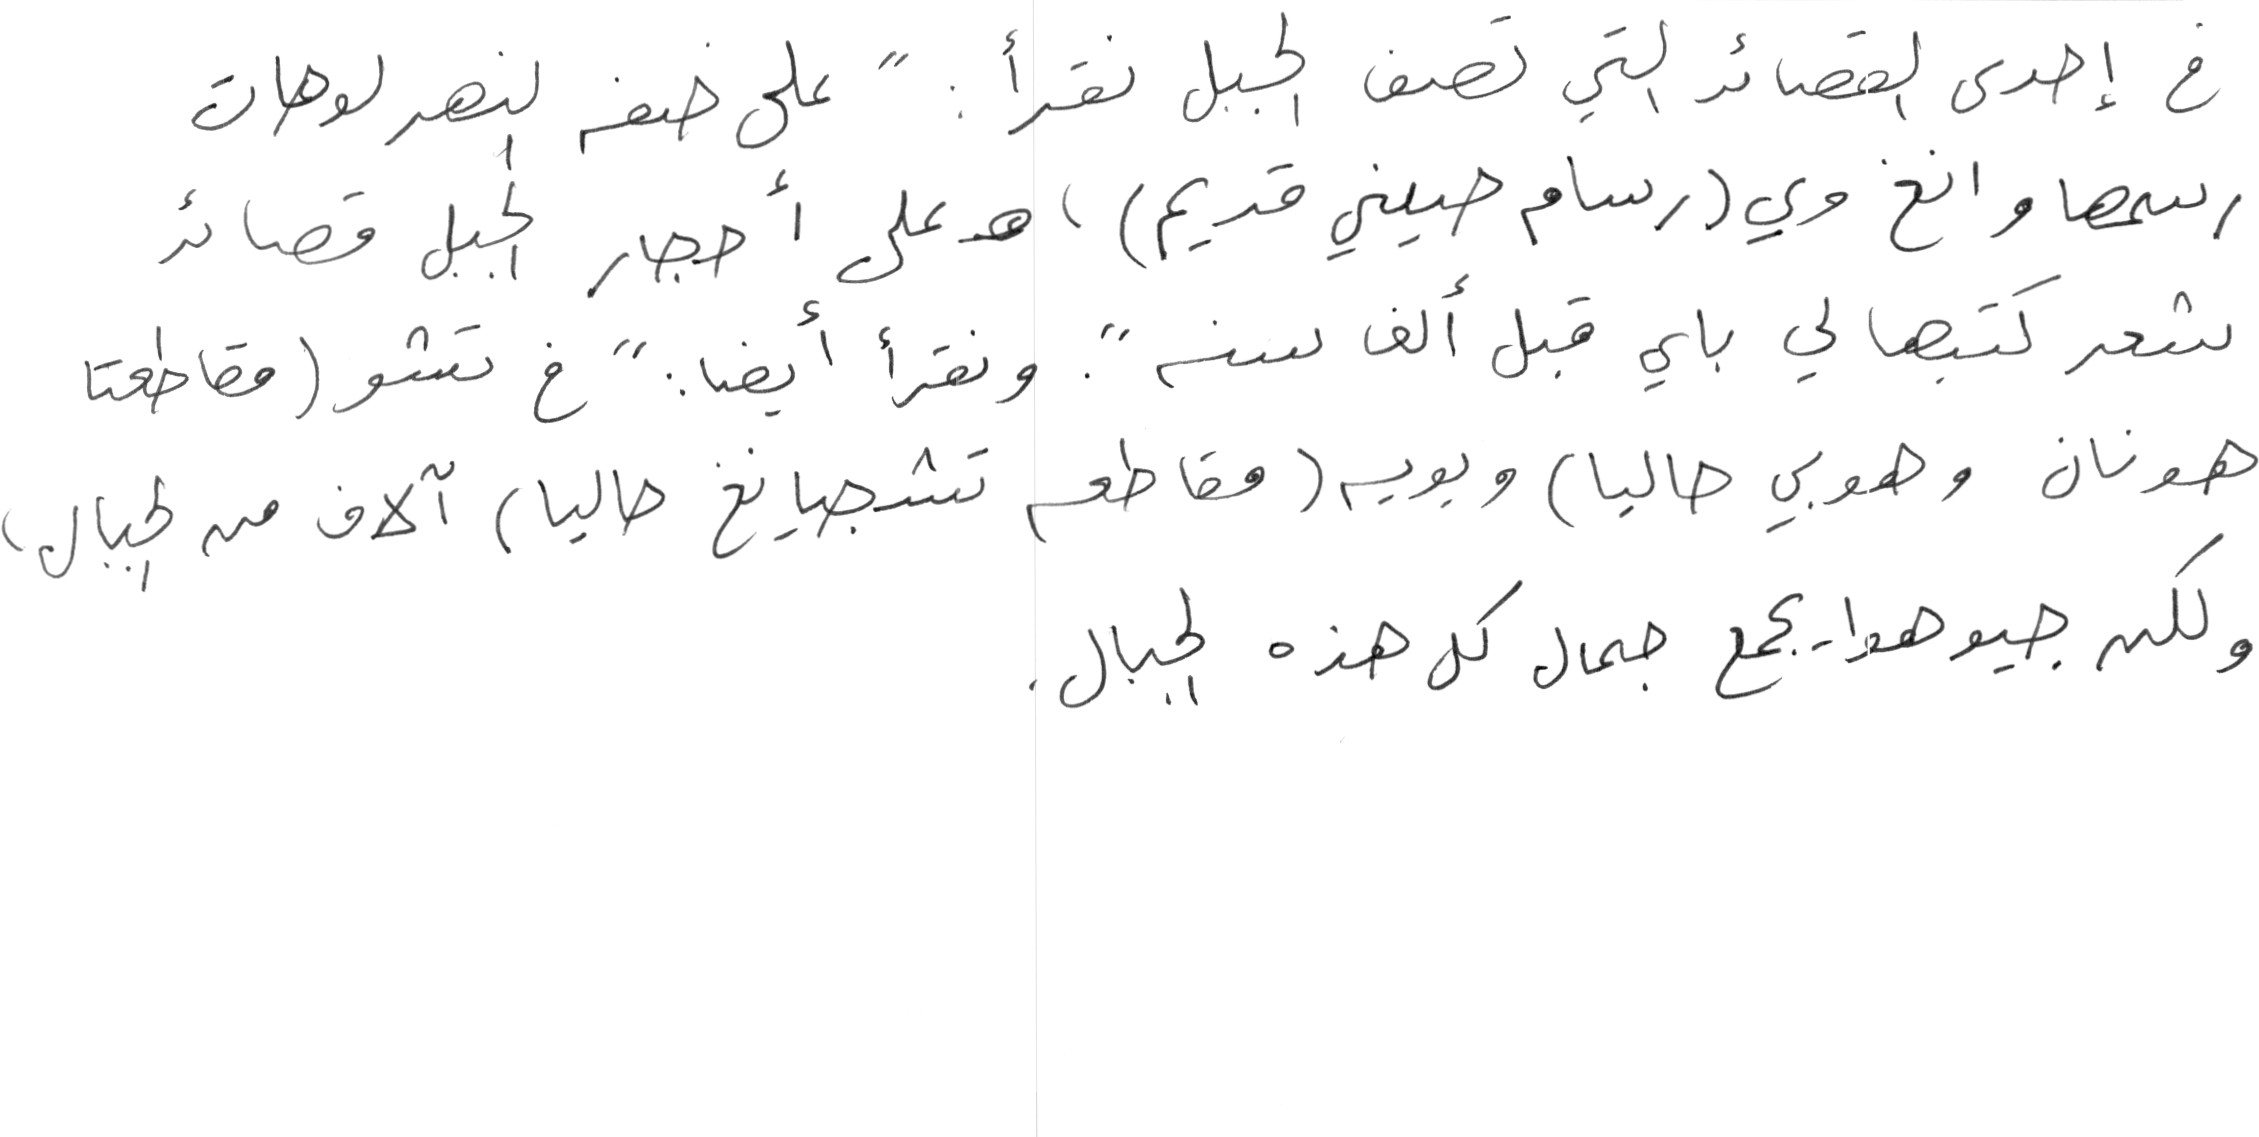 في إحدى القصائد التي تصف الجبل نقرأ: "على ضفة النهر لوحات
رسمها وانغ وي (رسام صيني قديم)، وعلى أحجار الجبل قصائد
شعر كتبها لي باي قبل ألف سنة". ونقرأ أيضا: "في تشو (مقاطعتا
هونان وهوبي حاليا) ويويه (مقاطعة تشجيانغ حاليا) آلاف من الجبال،
ولكن جيوهوا يجمع جمال كل هذه الجبال.